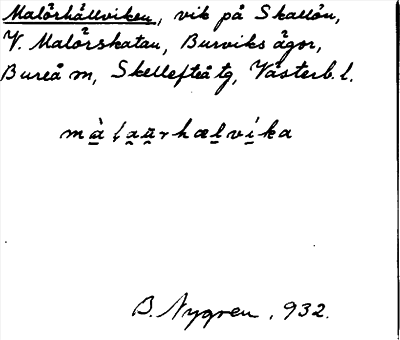 Malörhällviken, vik på Skallön,
V. Malörskatan, Burviks ägor,
Bureå m, Skellefteå tg, Västerb. l.
màlaürhælvíka
B. Nygren, 932.